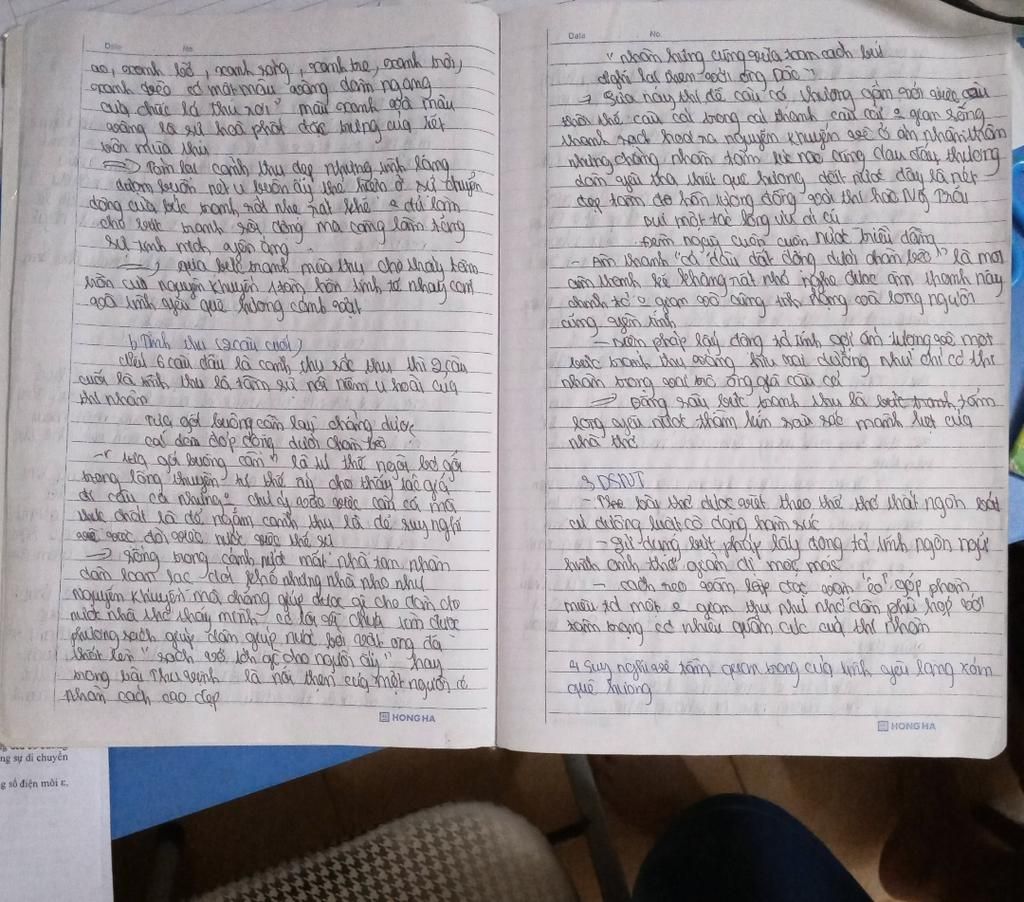 Date No.
ao, xanh bờ, xanh sóng, xanh tre, xanh trời,
xanh bèo có một màu vàng đâm ngang
của chiếc lá thu rơi" màu xanh và màu
vàng là sự hoà phối đặc trưng của tiết
trời mùa thu
=> Tóm lại cảnh thu đẹp nhưng tĩnh lặng
đượm buồn nét u buồn ấy thể hiện ở sự chuyển
động của bức tranh rất nhẹ rất khẽ đủ làm
cho bức tranh sôi động mà càng làm tăng
sự tĩnh mịch yên ắng
=> qua bức tranh mùa thu cho thấy tâm
hồn của nguyễn Khuyến tâm hồn tinh tế nhạy cảm
và tình yêu quê hương cảnh vật
b, Tình thu (2 câu cuối)
Nếu 6 câu đầu là cảnh thu sắc thu thì 2 câu
cuối là tình thu là tâm sự nỗi niềm u hoài của
thi nhân
Tựa gối buông cần lâu chẳng được
cá đâu đớp động dưới chân bèo
- "tựa gối buông cần" là tư thế ngồi bó gối
trong lòng thuyền tư thế này cho thấy tác giả
đi câu cá nhưng chú ý vào việc câu cá mà
thực chất là để ngắm cảnh thu là để suy nghĩ
về việc đời việc nước việc thế sự
-> sống trong cảnh nước mất nhà tan nhân
dân loạn lạc đói khổ những nhà nho như
nguyễn Khuyến mà chẳng giúp được gì cho dân cho
nước nhà thơ thấy mình có lỗi vì chưa làm được
phương sách giúp dân giúp nước bởi vậy ông đã
thốt lên "sách vở ích gì cho người ấy" hay
trong bài Thu vịnh là nỗi thẹn của một người có
nhân cách cao đẹp
HONG HA
Date No.
"nhân hứng cũng vừa toan cất bút
nghĩ lại thẹn với ông Đào"
-> Giữa này thì đề câu cá
thanh sạch hoá ra nguyễn Khuyến về ở ẩn
nhưng chẳng nhàn tâm lúc nào cũng đau đáu thương
dân yêu tha thiết quê hương đất nước đây là nét
đẹp tâm đồ hồn tương đồng với thi hào Ng Trãi
bui một tấc lòng ưu ái cũ
Đêm ngày cuồn cuộn nước triều dâng
- Âm thanh "cá đâu đớp động dưới chân bèo" là một
âm thanh rất nhỏ nghe được âm thanh này
chứng tỏ gian vô cùng tĩnh lặng và lòng người
cũng yên tĩnh
- biện pháp lấy động tả tĩnh gợi ấn tượng về một
bức tranh thu vắng dường như chỉ có thi
nhân trong vai trò ông già câu cá
=> Đằng sau bức tranh thu là tấm
lòng yêu nước thầm kín sâu sắc mãnh liệt của
nhà thơ
3, DSNT
- bài thơ được viết theo thể thơ thất ngôn bát
cú đường luật cô đọng hàm súc
- Sử dụng bút pháp lấy động tả tĩnh ngôn ngữ
hình ảnh thơ giản dị mộc mạc
- cách gieo vần "eo" góp phần
miêu tả một gian thu như nhỏ dần phù hợp với
tâm trạng có nhiều của thi nhân
4, Suy nghĩ về tầm quan trọng của tình yêu làng xóm
quê hương
HONG HA
ng sự di chuyển
g số điện môi ε,